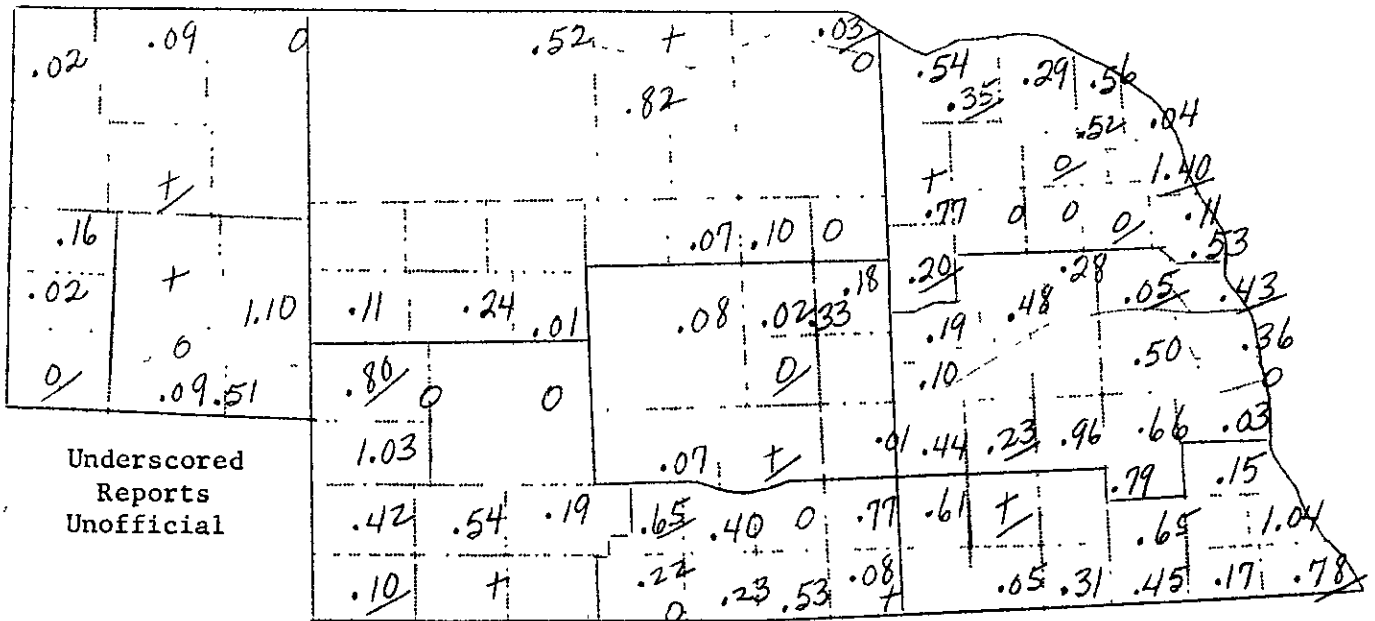 .02 .09 0 .52 + .03 0
.82
.54 .29 .56
.35 .52 .04
+ + 0 1.40
.77 0 0 0 .11
.16 .07 .10 0 .53
.02 + 1.10 .11 .24 .01 .08 .02 .33 .18 .20 .28 .05 .43
.19 .48 .36
0 0 .10 .50 0
0 .09 .51 .80 0 0
1.03 .07 + .01 .44 .23 .96 .66 .03
Underscored
Reports
Unofficial
.42 .54 .19 .65 .40 0 .77 .61 + .79 .15
.65 1.04
.10 + .22 .23 .53 .08 .05 .31 .45 .17 .78
0 +